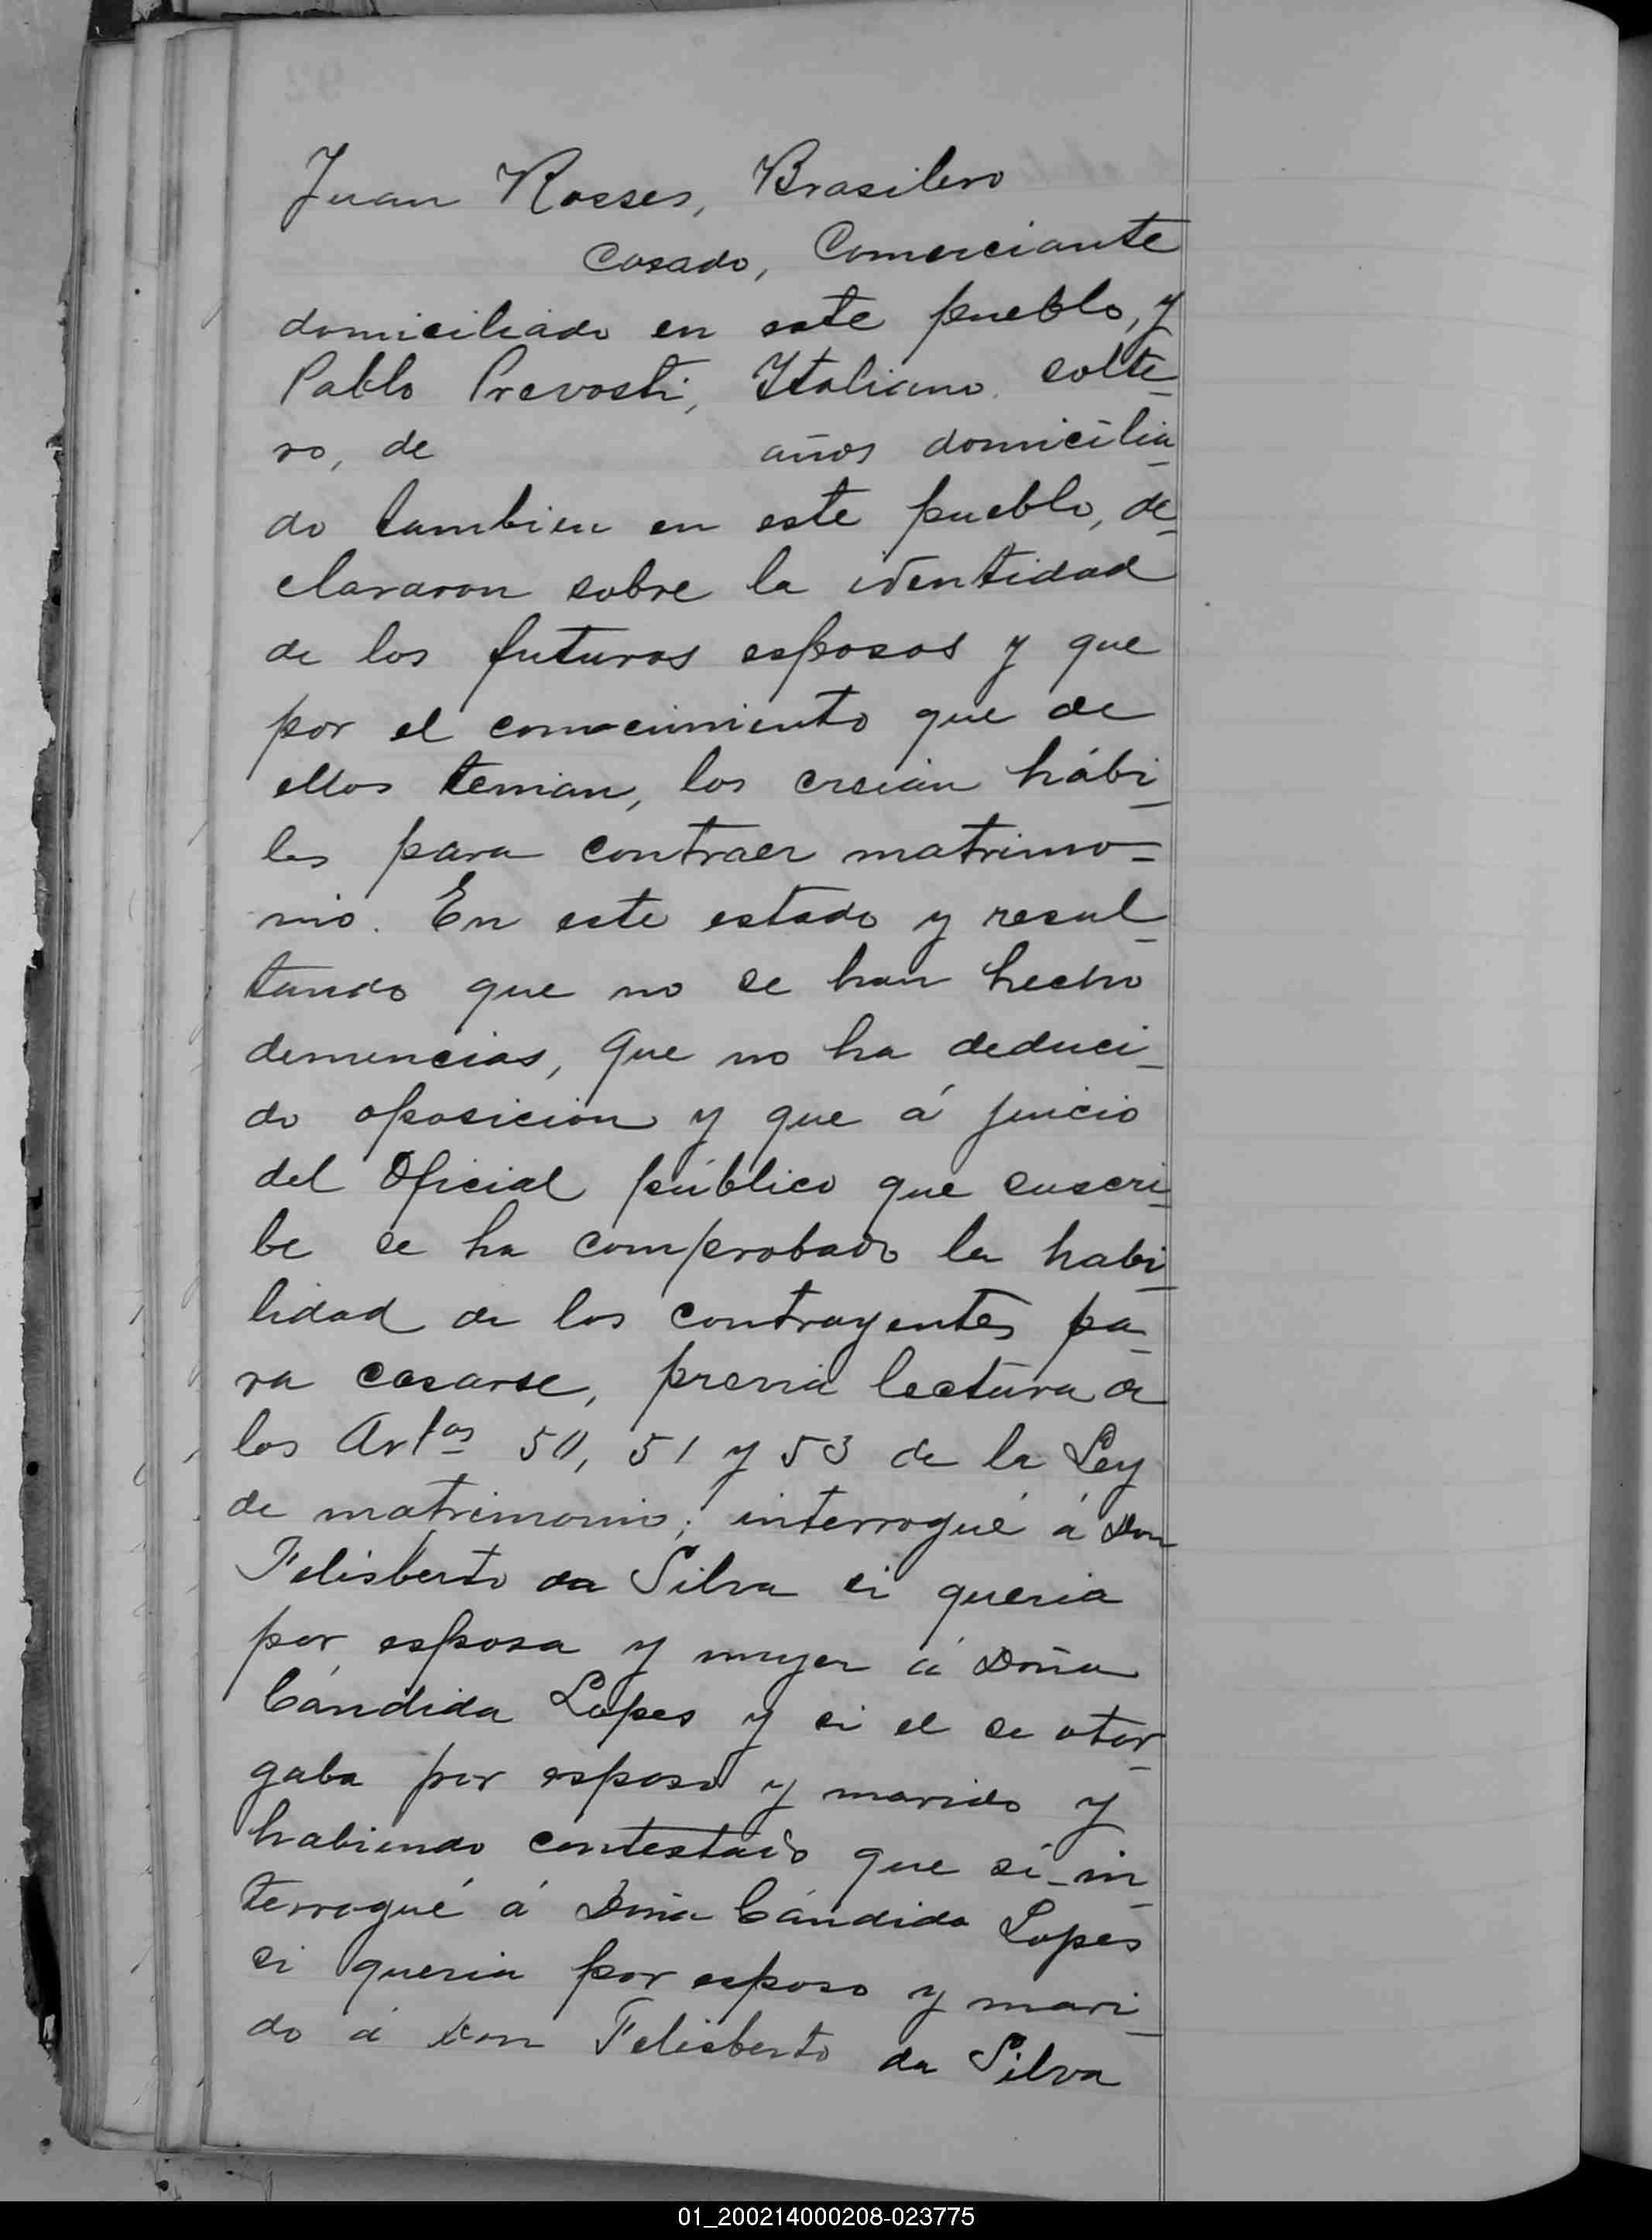 Juan Rosses, Brasilero
Casado, Comerciante
domiciliado en este pueblo, y
Pablo Prevosti, Italiano, solte
ro, de años domicilia
do tambien en este pueblo, de
clararon sobre la identidad
de los futuros esposos y que
por el conocimiento que de
ellos tenian, los creian hábi
les para contraer matrimo=
nio. En este estado y resul
tando que no se han hecho
denuncias, que no ha deduci
do oposicion y que á juicio
del Oficial público que suscri
be se ha comprobado la habi
lidad de los contrayentes pa
ra casarse, previa lectura de
los Artos 50, 51 y 53 de la Ley
de matrimonio; interrogué á Don
Felisberto da Silva si queria
por esposa y mujer á Doña
Cándida Lopes y si el se otor
gaba por esposo y marido y
habiendo contestado que sí in
terrogué á Doña Cándida Lopes
si queria por esposo y mari
do á Don Felisberto da Silva
01_200214000208-023775